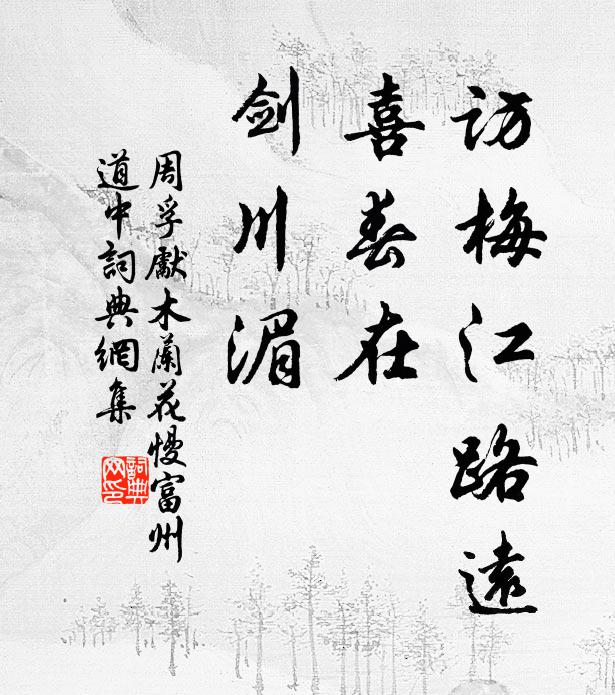 訪梅江路遠
喜春在
劍川湄
周孚獻木蘭花慢富州
道中詞典網集
詞典
网印